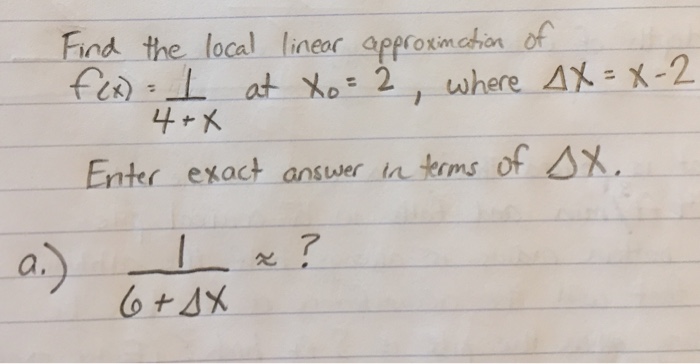 Find the local linear approximation of
f(x) = 1/(4+x) at x₀ = 2, where Δx = x-2
Enter exact answer in terms of Δx.
a.) 1/(6+Δx) ≈ ?